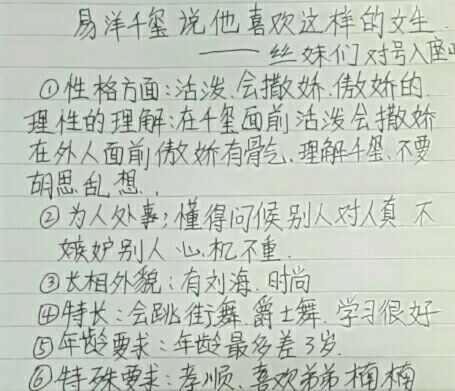 易洋千玺说他喜欢这样的女生
——丝妹们对号入座
①性格方面:活泼会撒娇.傲娇的.
理性的理解:在千玺面前活泼会撒娇
在外人面前傲娇有骨气.理解千玺.不要
胡思乱想.
②为人处事;懂得问候别人对人真.不
嫉妒别人 心机不重.
③长相外貌:有刘海.时尚
④特长:会跳街舞.爵士舞.学习很好
⑤年龄要求:年龄最多差3岁.
⑥特殊要求:孝顺、喜欢弟弟楠楠